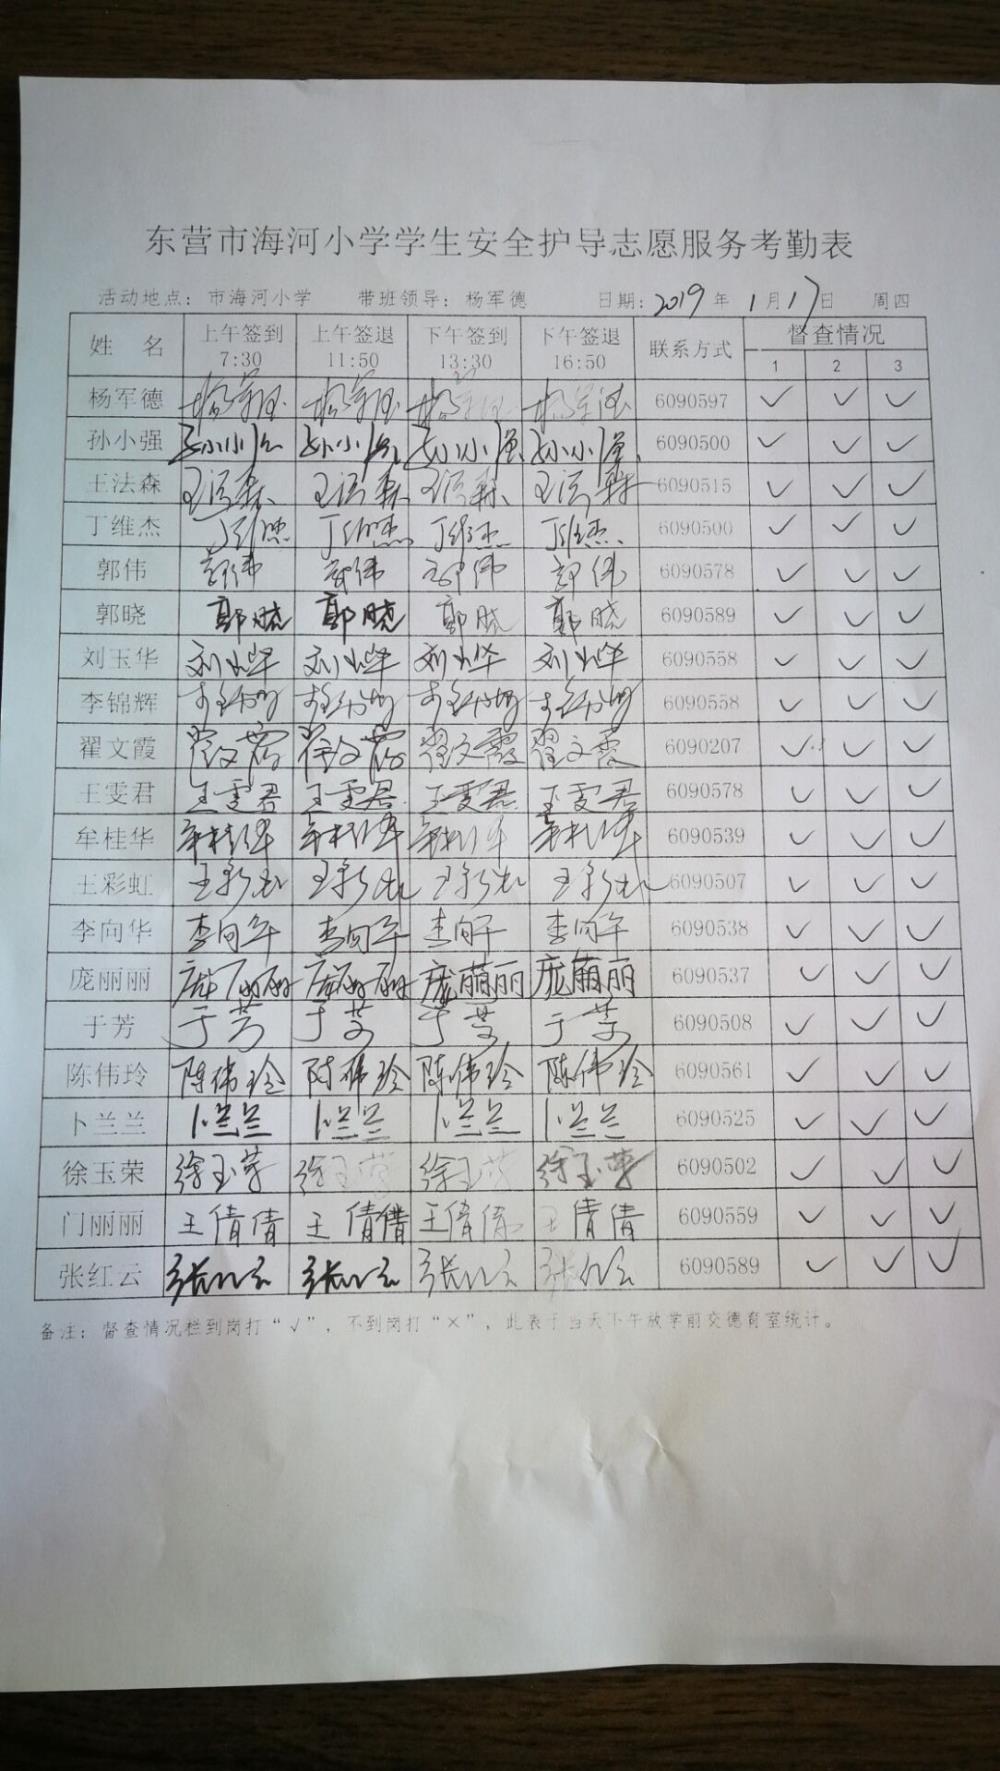 东营市海河小学学生安全护导志愿服务考勤表
活动地点：市海河小学 带班领导：杨军德 日期：2019年1月17日 周四
姓 名 上午签到 7:30 上午签退 11:50 下午签到 13:30 下午签退 16:50 联系方式 督查情况 1 2 3
杨军德 杨军德 杨军德 杨军德 杨军德 6090597 ✓ ✓ ✓
孙小强 孙小强 孙小强 孙小强 孙小强 6090500 ✓ ✓ ✓
王法森 王法森 王法森 王法森 王法森 6090515 ✓ ✓ ✓
丁维杰 丁维杰 丁维杰 丁维杰 丁维杰 6090500 ✓ ✓ ✓
郭伟 郭伟 郭伟 郭伟 郭伟 6090578 ✓ ✓ ✓
郭晓 郭晓 郭晓 郭晓 郭晓 6090589 ✓ ✓ ✓
刘玉华 刘玉华 刘玉华 刘玉华 刘玉华 6090558 ✓ ✓ ✓
李锦辉 李锦辉 李锦辉 李锦辉 李锦辉 6090558 ✓ ✓ ✓
翟文霞 翟文霞 翟文霞 翟文霞 翟文霞 6090207 ✓ ✓ ✓
王雯君 王雯君 王雯君 王雯君 王雯君 6090578 ✓ ✓ ✓
牟桂华 牟桂华 牟桂华 牟桂华 牟桂华 6090539 ✓ ✓ ✓
王彩虹 王彩虹 王彩虹 王彩虹 王彩虹 6090507 ✓ ✓ ✓
李向华 李向华 李向华 李向华 李向华 6090538 ✓ ✓ ✓
庞丽丽 庞丽丽 庞丽丽 庞丽丽 庞丽丽 6090537 ✓ ✓ ✓
于芳 于芳 于芳 于芳 于芳 6090508 ✓ ✓ ✓
陈伟玲 陈伟玲 陈伟玲 陈伟玲 陈伟玲 6090561 ✓ ✓ ✓
卜兰兰 卜兰兰 卜兰兰 卜兰兰 卜兰兰 6090525 ✓ ✓ ✓
徐玉荣 徐玉荣 徐玉荣 徐玉荣 徐玉荣 6090502 ✓ ✓ ✓
门丽丽 王倩倩 王倩倩 王倩倩 王倩倩 6090559 ✓ ✓ ✓
张红云 张红云 张红云 张红云 张红云 6090589 ✓ ✓ ✓
备注：督查情况栏到岗打“√”，不到岗打“×”，此表于当天下午放学前交德育室统计。